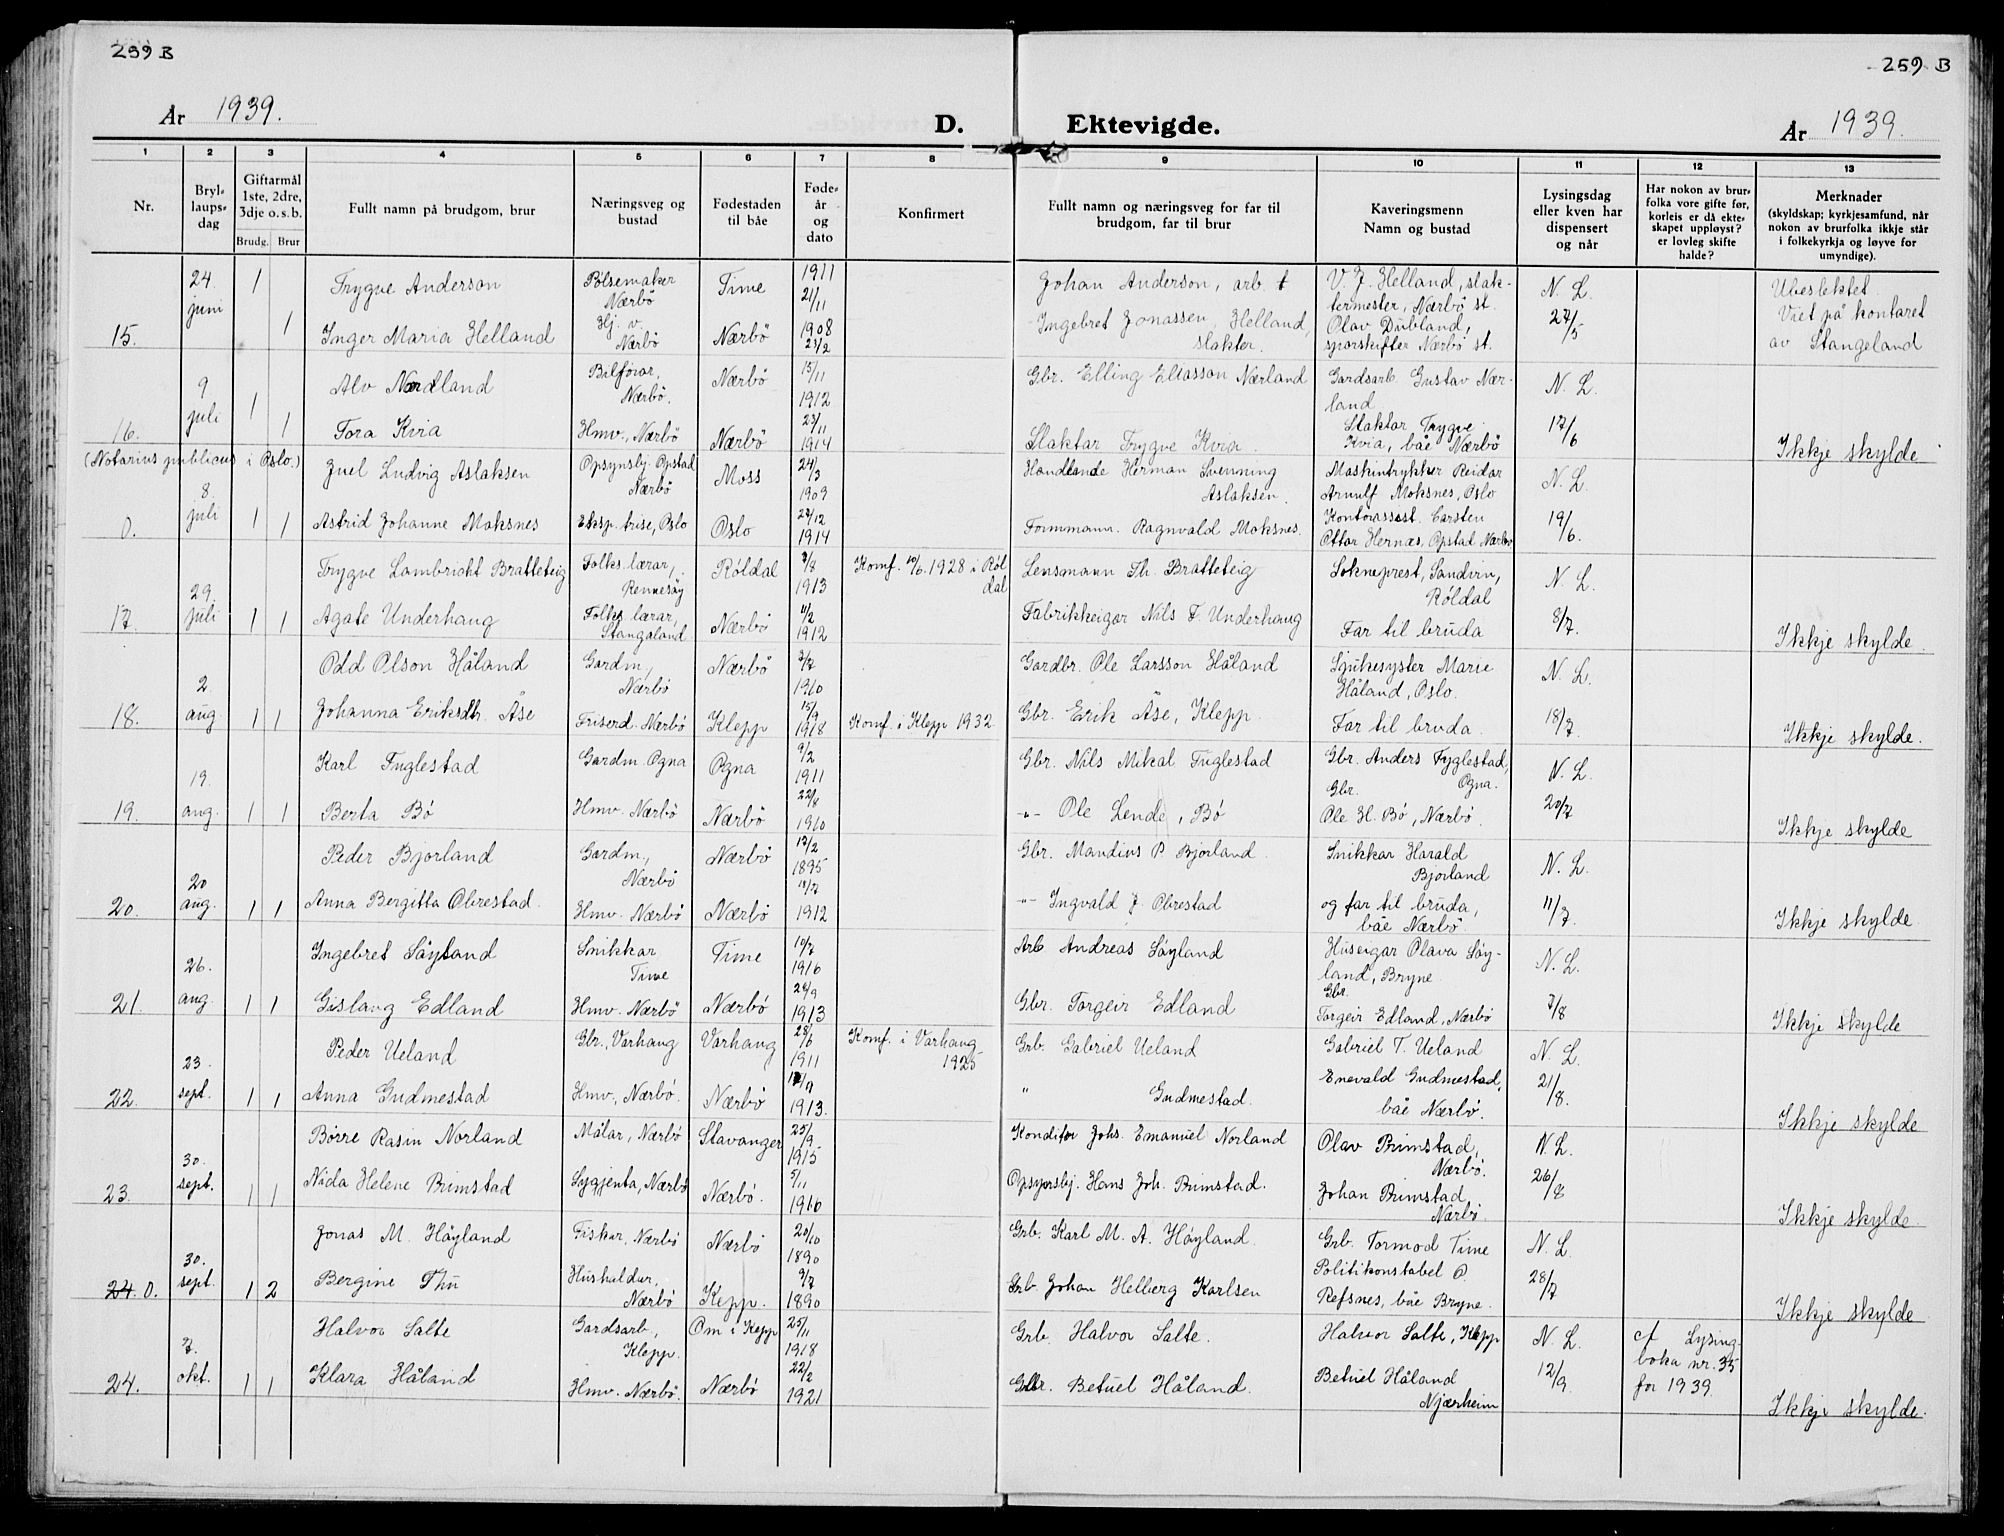 259 B
259 B
År 1939.
D. Ektevigde.
År 1939.
1 2 3 4 5 6 7 8 9 10 11 12 13
Nr.
Bryl-
laups-
dag
Giftarmål
1ste, 2dre,
3dje o. s. b.
Brudg. Brur
Fullt namn på brudgom, brur
Næringsveg og
bustad
Fødestaden
til båe
Føde-
år
og
dato
Konfirmert
Fullt namn og næringsveg for far til
brudgom, far til brur
Kaveringsmenn
Namn og bustad
Lysingsdag
eller kven har
dispensert
og når
Har nokon av brur-
folka vore gifte før,
korleis er då ekte-
skapet uppløyst?
er lovleg skifte
halde?
Merknader
(skyldskap; kyrkjesamfund, når
nokon av brurfolka ikkje står
i folkekyrkja og løyve for
umyndige).
15. 24. juni 1 1
Trygve Anderson Pölsemaker Nærbö Time 1911 21/11
Johan Anderson, arb. t
V. J. Helland, slak-
termester, Nærbö st.
N. L.
Inger Maria Helland Hj. v. Nærbö Nærbö 1908 23/2
Ingebret Jonassen Helland, slakter.
Olav Dubland,
sporskifter Nærbö st.
27/5
Ubeslektet.
Viet på kontoret
av Stangeland
16. 9 juli 1 1
Alv Nærland Bilförar, Nærbö. Nærbö 15/11 1912
Gbr. Elling Eliasson Nærland
Gardsarb. Gustav Nær-
land
N. L.
Tora Kvia Hmv., Nærbö Nærbö 23/11 1914
Slaktar Trygve Kvia.
Slaktar Trygve
Kvia, båe Nærbö
17/6
Ikkje skylde
(Notarius publicus i Oslo.)
0. 8. juli 1 1
Juel Ludvig Aslaksen Opsynsbj. Opstad Nærbö Moss 24/3 1909
Handlande Herman Svenning
Aslaksen.
Maskintrykker Reidar
Arnulf Moksnes, Oslo
N. L.
Astrid Johanne Moksnes Eksp. trise, Oslo Oslo 27/12 1914
Formmann. Ragnvald Moksnes.
Kontorassst. Carsten
Ottar Hernæs, Opstad Nærbö
19/6
17. 29. juli 1 1
Trygve Lambricht Bratteteig Folksk. lærar, Rennesöy Röldal 3/8 1913
Konf. 10/6. 1928 i Röl
dal
Lensmann Th. Bratteteig
Sokneprest, Sandvin,
Röldal
N. L.
Agate Underhaug Folksk. lærar, Stangaland Nærbö 11/2 1912
Fabrikkeigar Nils T. Underhaug
Far til bruda
8/7.
Ikkje skylde.
18. 2. aug. 1 1
Odd Olson Håland Gardm., Nærbö Nærbö 7/7 1910
Gardbr. Ole Larsson Håland
Sjukesyster Marie
Håland, Oslo.
N. L.
Johanna Eriksdtr. Åse Friserd. Nærbö Klepp 15/9 1918
Konf. i Klepp 1932
Gbr. Erik Åse, Klepp.
Far til bruda.
18/7
Ikkje skylde.
19. 19. aug. 1 1
Karl Fuglestad Gardm. Ogna Ogna 9/2 1911
Gbr. Nils Mikal Fuglestad
Gbr. Anders Fyglestad,
Ogna.
N. L.
Berta Bö Hmv. Nærbö Nærbö 22/8 1910
-"- Ole Lende, Bö
Gbr.
Ole H. Bö, Nærbö.
20/7
Ikkje skylde
20. 20 aug. 1 1
Peder Bjorland Gardm., Nærbö Nærbö 17/2 1895
Gbr. Mandius P Bjorland.
Snikkar Harald
Bjorland
N. L.
Anna Bergitta Obrestad. Hmv. Nærbö Nærbö 18/7 1912
-"- Ingvald J. Obrestad
og far til bruda,
båe Nærbö.
11/7.
Ikkje skylde.
21. 26. aug. 1 1
Ingebret Söyland Snikkar Time Time 10/7 1916
Arb Andreas Söyland
Huseigar Olava Söy-
land, Bryne
N. L.
Gislaug Edland Hmv. Nærbö Nærbö 24/9 1913
Gbr. Torgeir Edland
Gbr.
Torgeir Edland, Nærbö
7/8
Ikkje skylde
22. 23. sept. 1 1
Peder Ueland Gbr., Varhaug Varhaug 28/6 1911
Konf. i Varhaug
1925
Grb. Gabriel Ueland
Gabriel T. Ueland
N. L.
Anna Gudmestad Hmv., Nærbö. Nærbö 1913.
" Gudmestad.
Enevald Gudmestad,
båe Nærbö.
21/8.
Ikkje skylde
23. 30. sept. 1 1
Börre Rasin Norland Målar, Nærbö Stavanger 25/9. 1915
Konditor Johs. Emanuel Norland
Olav Brimstad,
Nærbö.
N. L.
Nida Helene Brimstad Sygjenta, Nærbö Nærbö. 5/11 1916
Opsynsbj. Hans Joh. Brimstad.
Johan Brimstad,
Nærbö.
26/8
Ikkje skylde.
24. 0. 30. sept. 1 2
Jonas M. Höyland Fiskar, Nærbö Nærbö 20/10 1890
Grb. Karl M. A. Höyland.
Grb. Tormod Time
N. L.
Bergine Thu Hushaldar, Nærbö Kepp. 9/7 1890
Grb Johan Helberg Karlsen
Politikonstabel O.
Refsnes, båe Bryne.
28/7
Ikkje skylde
24. 7. okt. 1 1
Halvor Salte Gardsarb., Klepp. Om i Kepp 25/11 1918
Grb. Halvor Salte.
Halvor Salte, Klepp
N. L.
cf Lysing-
boka nr. 35
for 1939.
Klara Håland Hmv. Nærbö. Nærbö 22/2 1921
Gbr. Betuel Håland.
Betuel Håland
Njærheim
12/9.
Ikkje skylde.